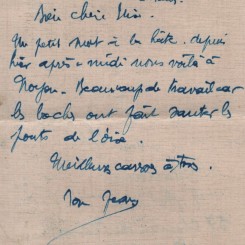 Un petit mot à la hâte. depuis
hier après-midi nous voilà à
Noyon. Beaucoup de travail car
les boches ont fait sauter les
ponts de l'Oise.
Meilleurs à tous.
Ton